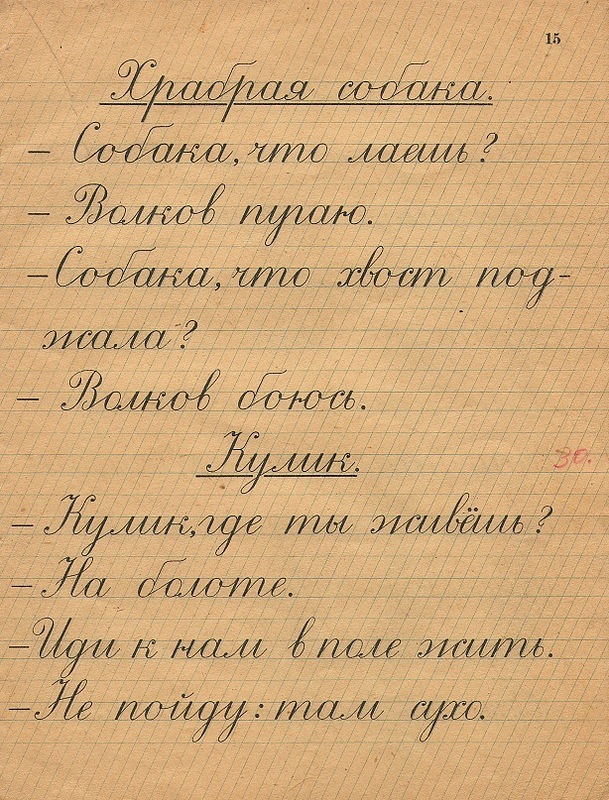 15
Храбрая собака.
– Собака, что лаешь?
– Волков пугаю.
– Собака, что хвост под-
жала?
– Волков боюсь.
Кулик.
30.
– Кулик, где ты живёшь?
– На болоте.
– Иди к нам в поле жить.
– Не пойду: там сухо.